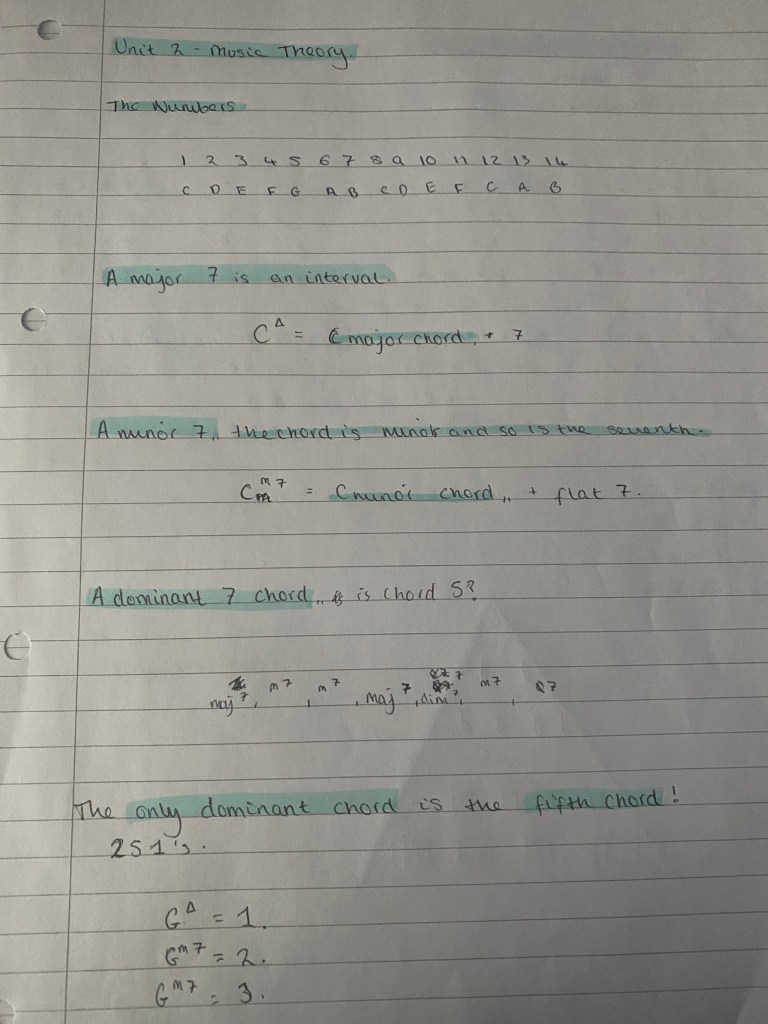 Unit 2 - Music Theory.
The Numbers
1 2 3 4 5 6 7 8 9 10 11 12 13 14
C D E F G A B C D E F C A B
A major 7 is an interval.
C△ = C major chord, + 7
A minor 7,, the chord is minor and so is the seventh.
Cm7 = C minor chord,, + flat 7.
A dominant 7 chord,, is chord 5?
maj7, m7, m7, maj7, dim7, m7, Q7
The only dominant chord is the fifth chord!
251's.
G△ = 1.
Gm7 = 2.
Gm7 = 3.